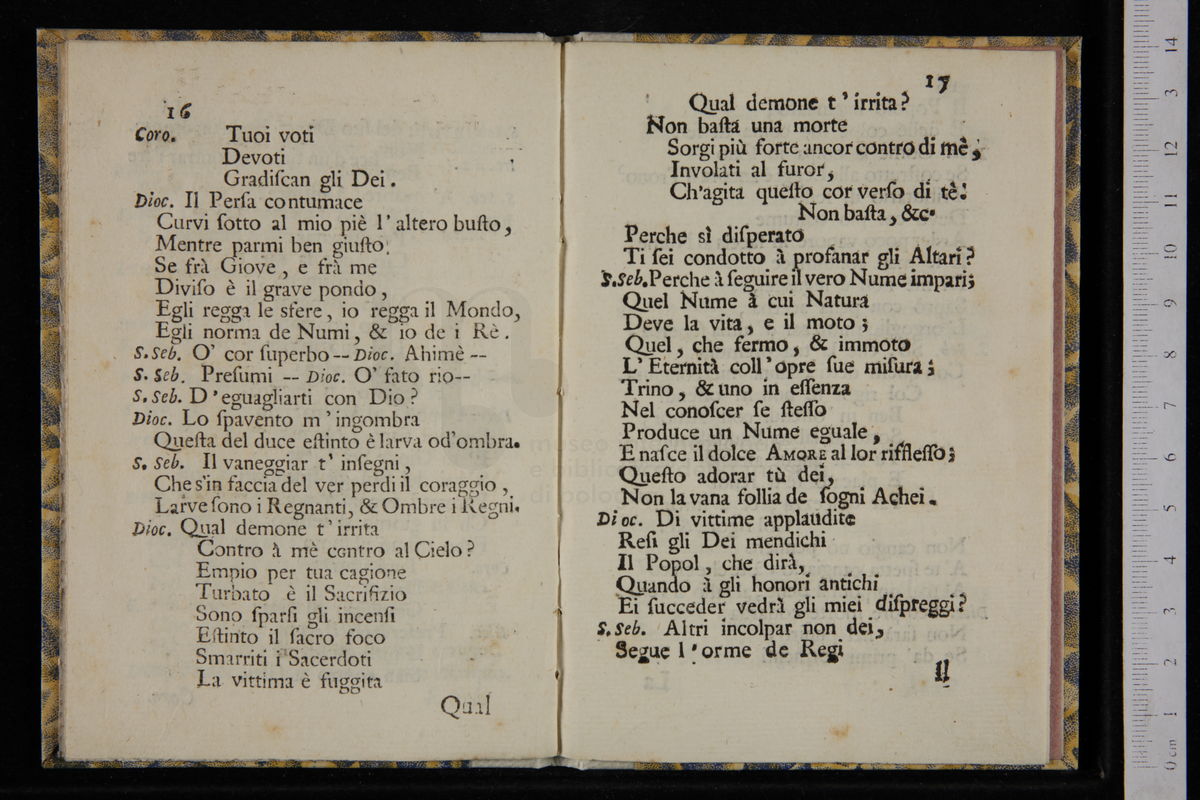 16
Coro. Tuoi voti
Devoti
Gradiſcan gli Dei.
Dioc. Il Perſa contumace
Curvi ſotto al mio piè l' altero buſto,
Mentre parmi ben giuſto;
Se frà Giove, e frà me
Diviſo è il grave pondo,
Egli regga le sfere, io regga il Mondo,
Egli norma de Numi, & io de i Rè.
S. Seb. O' cor ſuperbo -- Dioc. Ahimè --
S. Seb. Preſumi -- Dioc. O' fato rio--
S. Seb. D'eguagliarti con Dio?
Dioc. Lo ſpavento m' ingombra
Queſta del duce eſtinto è larva od'ombra.
S. Seb. Il vaneggiar t' inſegni,
Che s'in faccia del ver perdi il coraggio,
Larve ſono i Regnanti, & Ombre i Regni.
Dioc. Qual demone t' irrita
Contro à mè contro al Cielo?
Empio per tua cagione
Turbato è il Sacrifizio
Sono ſparſi gli incenſi
Eſtinto il ſacro foco
Smarriti i Sacerdoti
La vittima è fuggita
Qual
17
Qual demone t' irrita?
Non baſta una morte
Sorgi più forte ancor contro di mè;
Involati al furor,
Ch'agita queſto cor verſo di tè.
Non baſta, &c.
Perche sì diſperato
Ti ſei condotto à profanar gli Altari?
S.Seb. Perche à ſeguire il vero Nume impari;
Quel Nume à cui Natura
Deve la vita, e il moto;
Quel, che fermo, & immoto
L' Eternità coll' opre ſue miſura;
Trino, & uno in eſſenza
Nel conoſcer ſe ſteſſo
Produce un Nume eguale,
E naſce il dolce AMORE al lor riffleſſo;
Queſto adorar tù dei,
Non la vana follia de ſogni Achei.
Dioc. Di vittime applaudite
Reſi gli Dei mendichi
Il Popol, che dirà,
Quando à gli honori antichi
Ei ſucceder vedrà gli miei diſpreggi?
S. Seb. Altri incolpar non dei,
Segue l'orme de Regi
Il
museo
e biblio
di bolo
0 cm 1 2 3 4 5 6 7 8 9 10 11 12 3 14